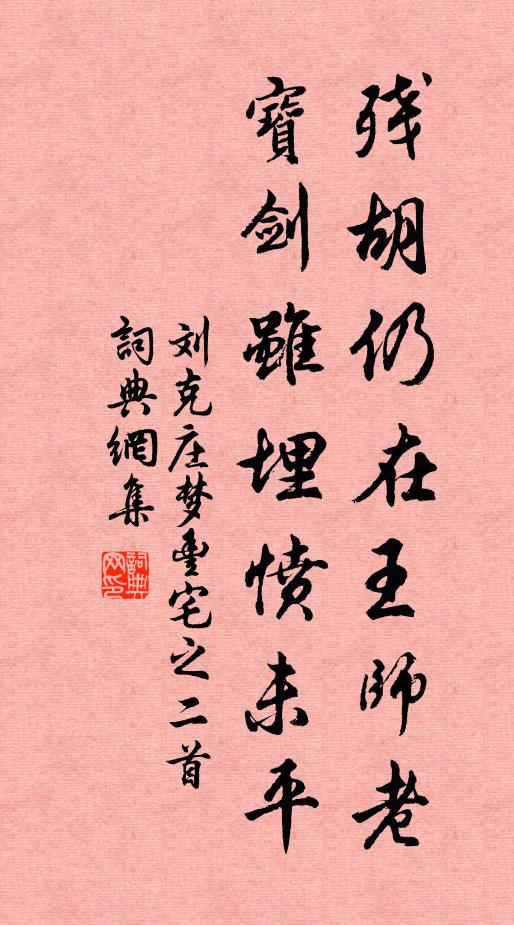 残胡仍在王師老
寶剑雖埋憤未平
刘克庄梦豊宅之二首
詞典網集
詞典
网印